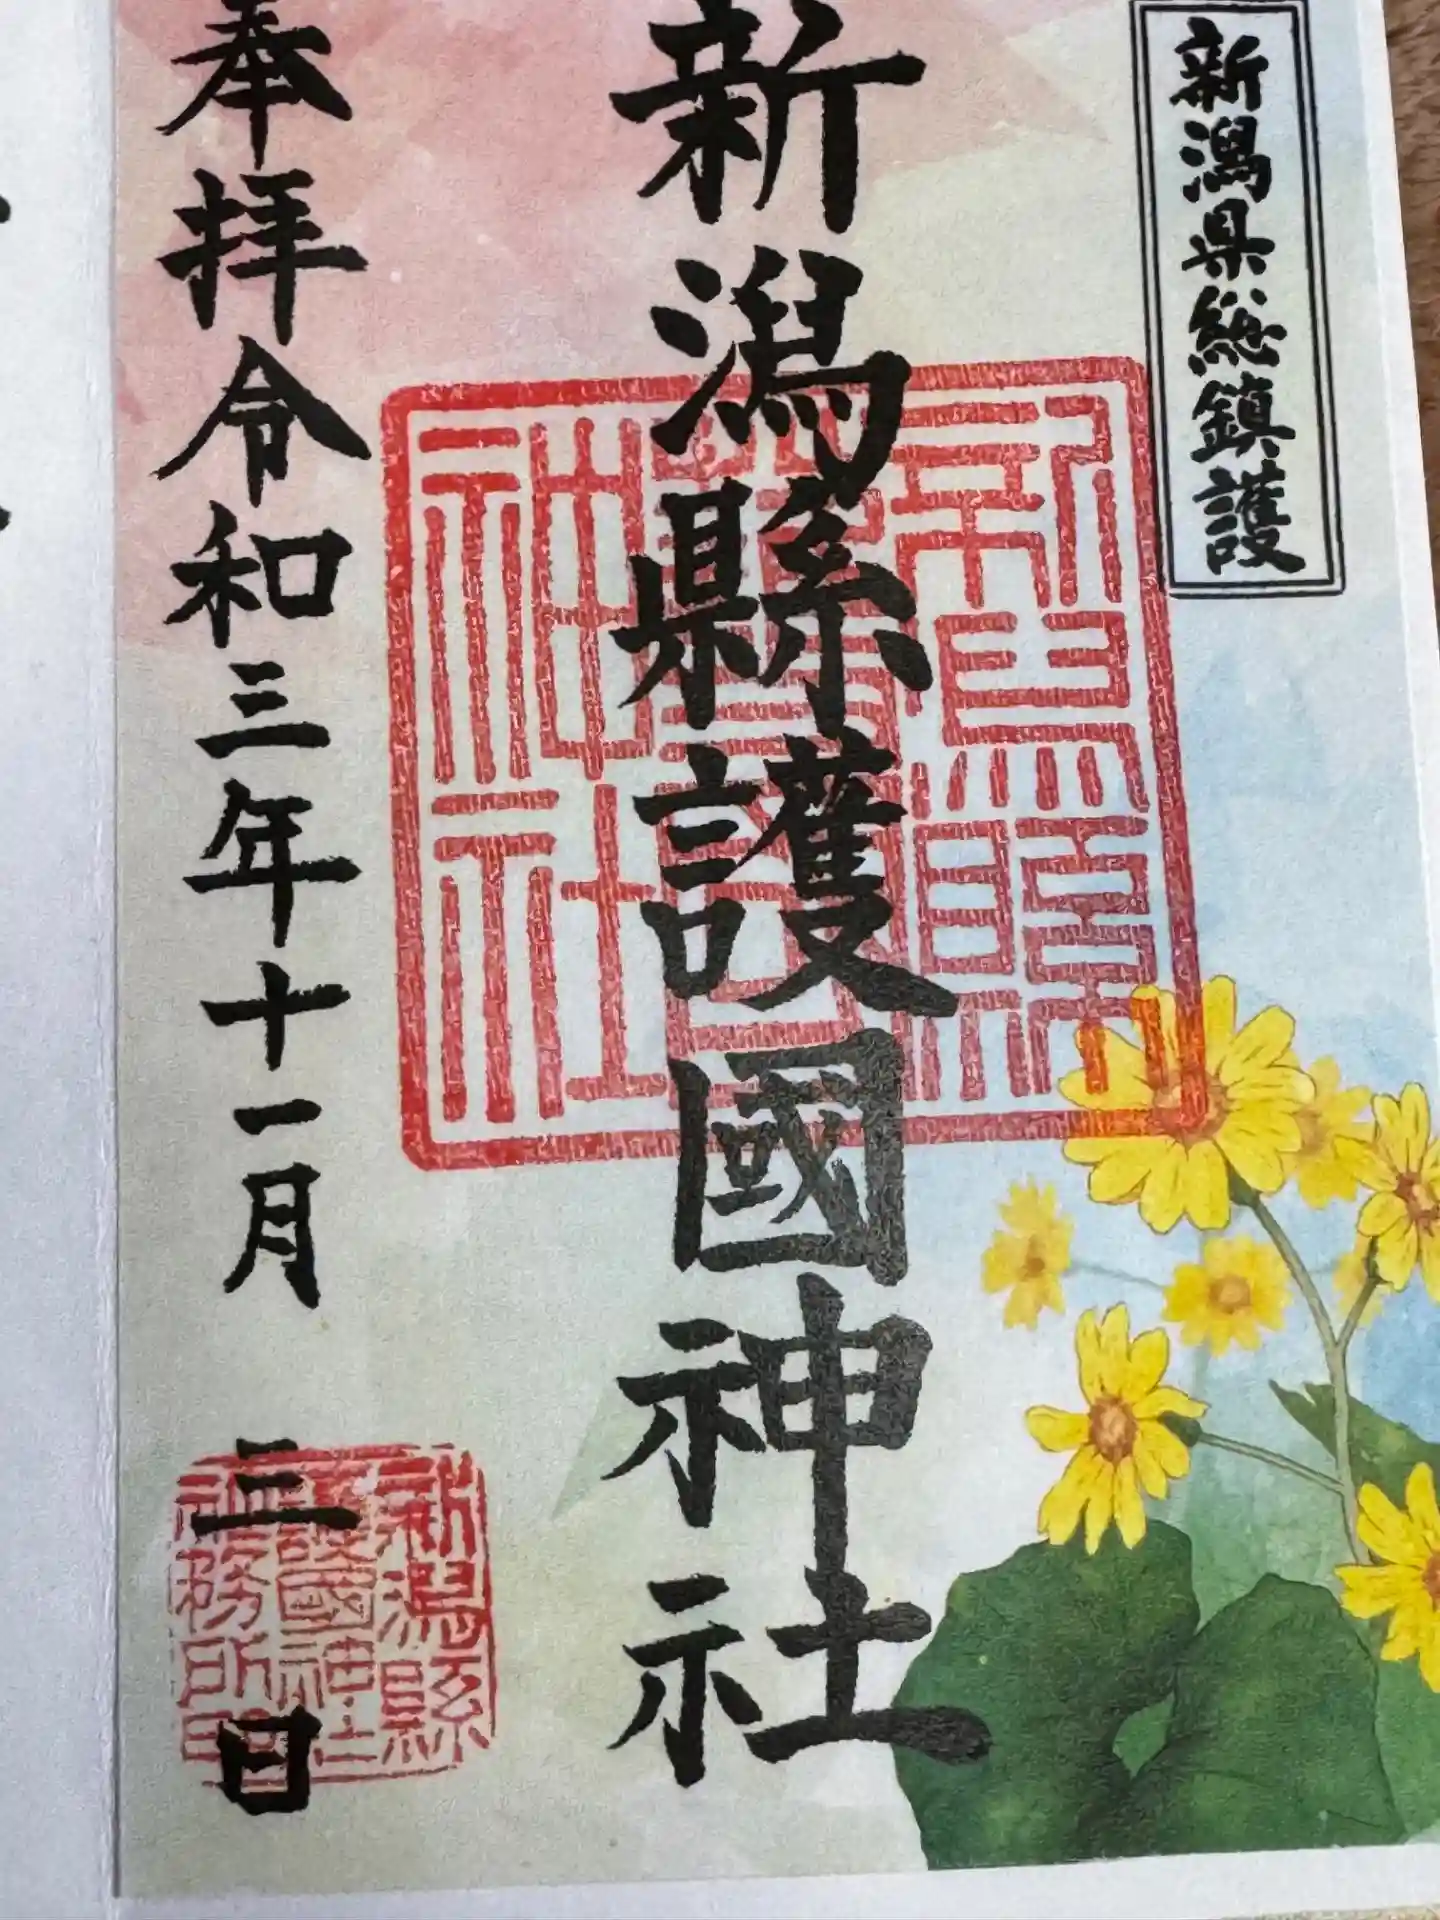 新潟県総鎮護
新潟縣護國神社
奉拝令和三年十一月三日
新潟縣
護國神社
社務所印